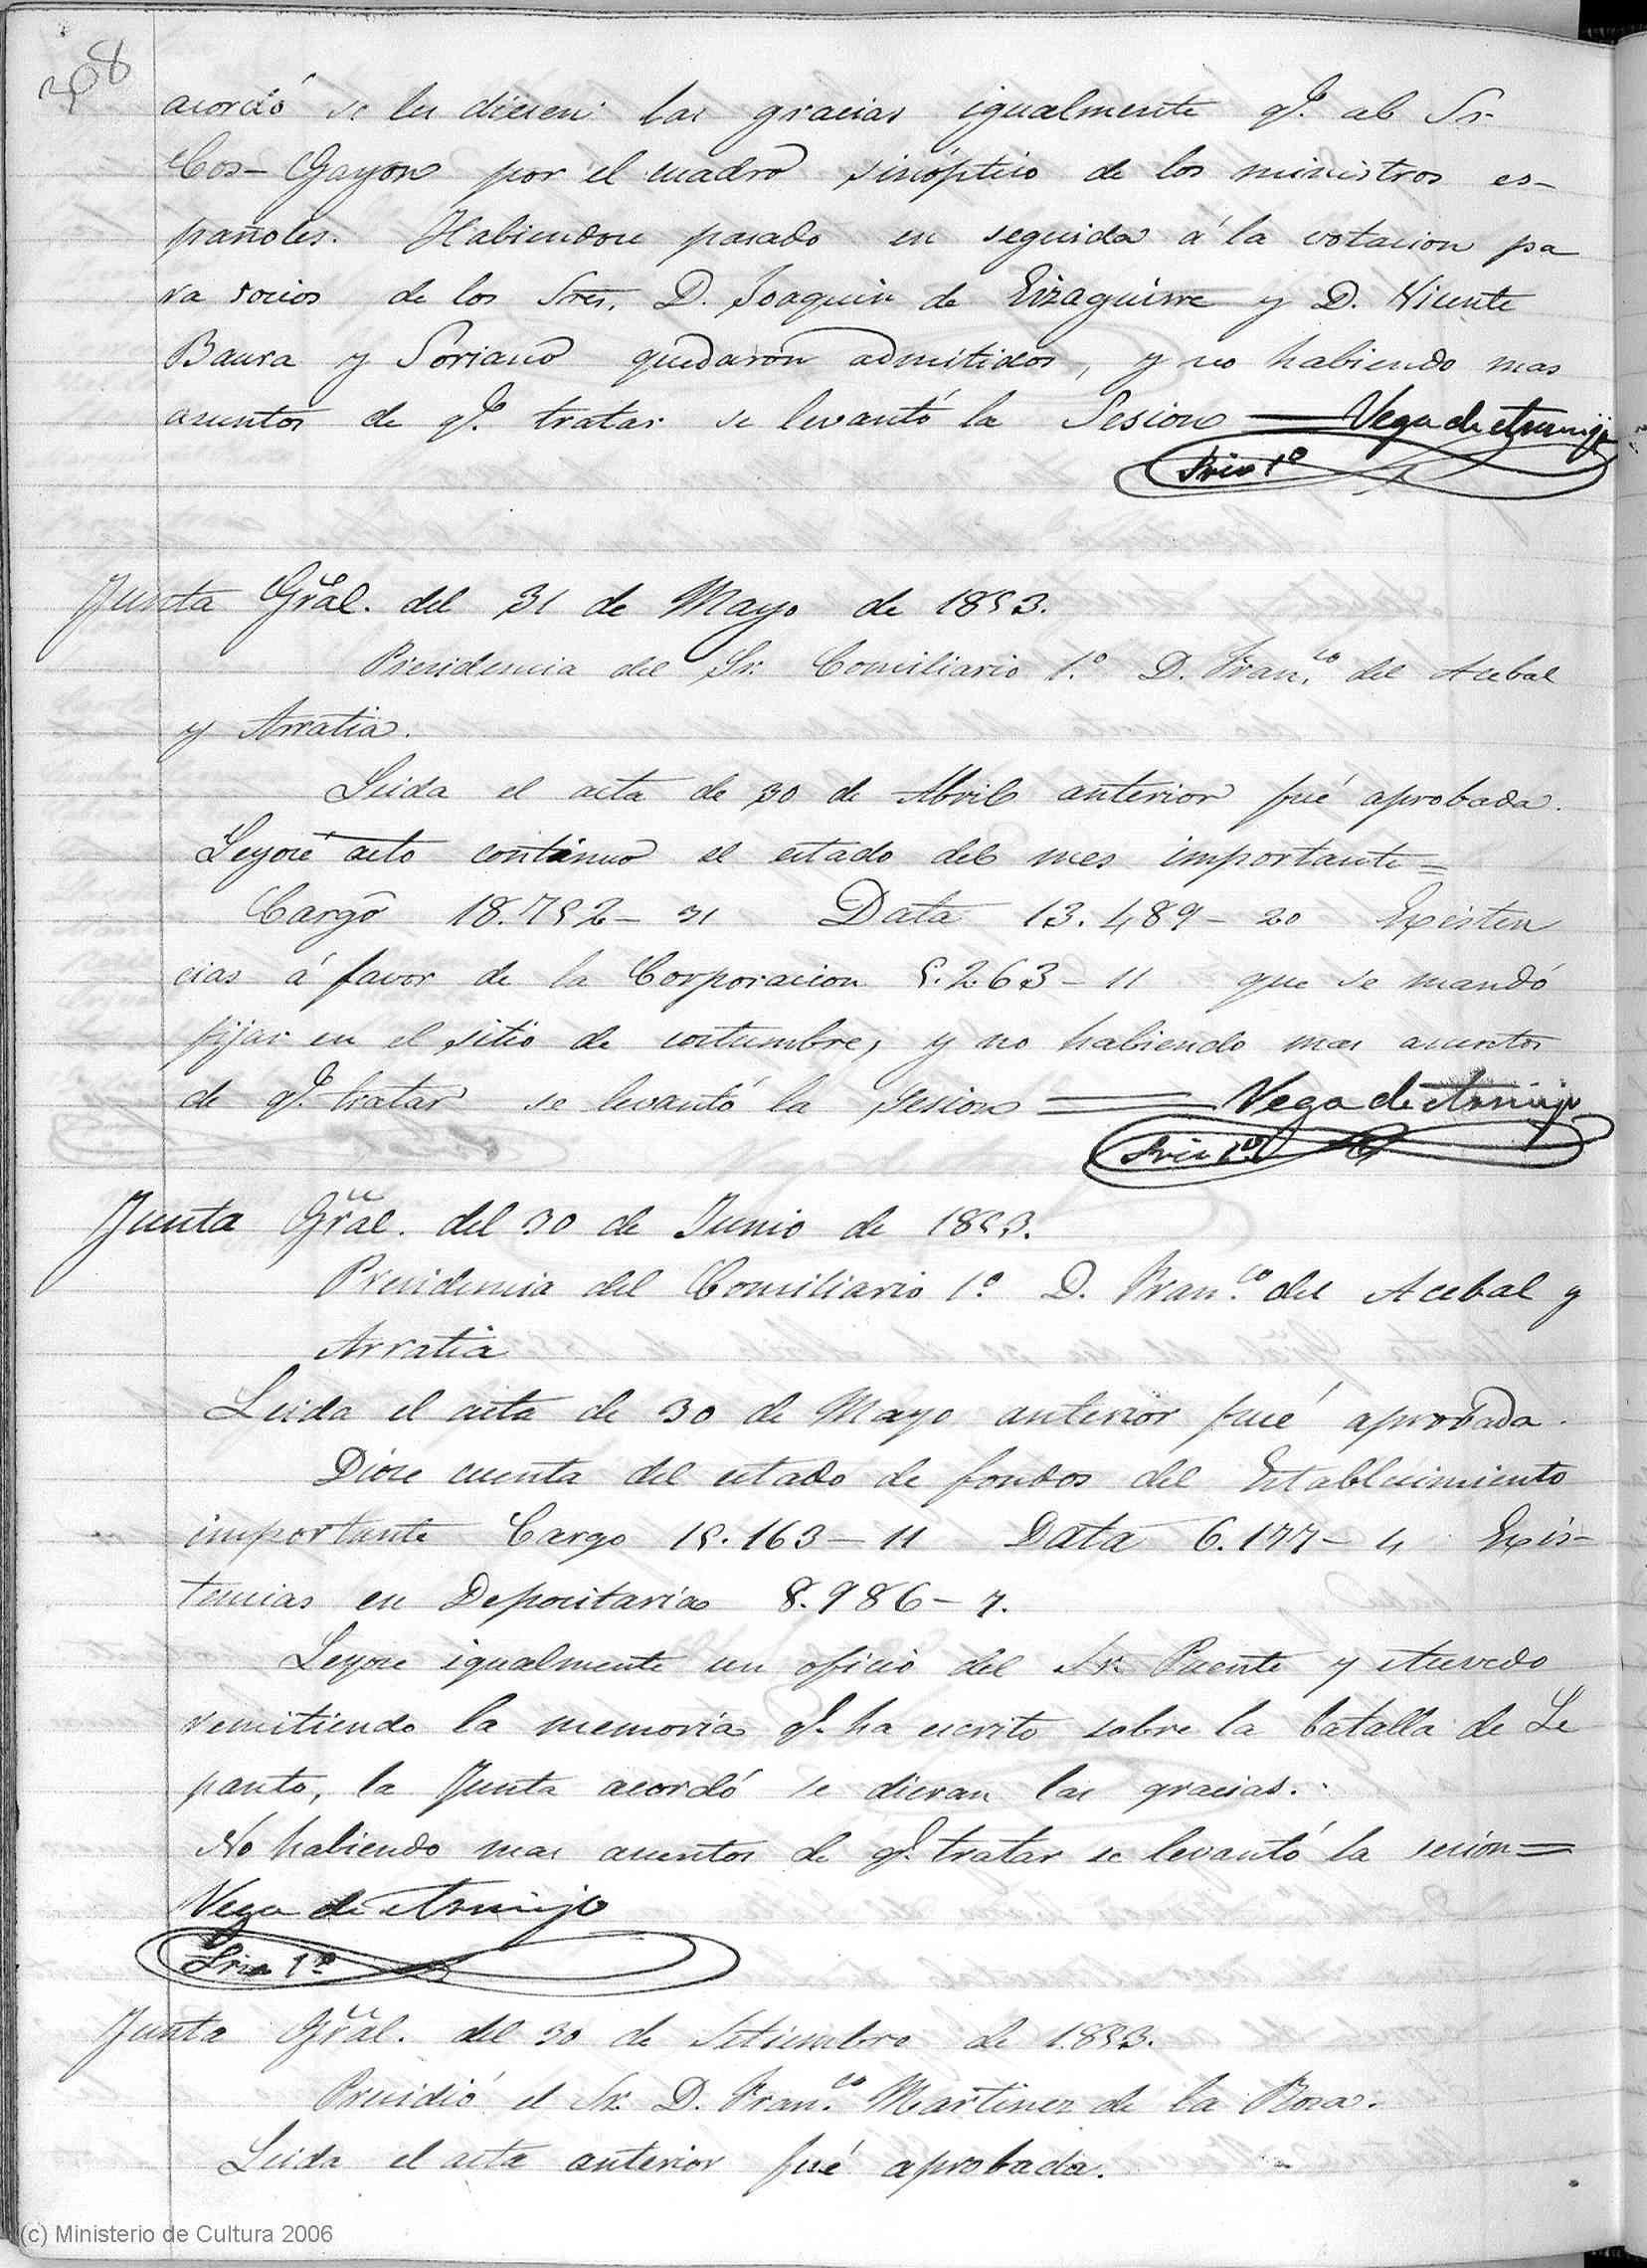 308
acordó se les diesen las gracias igualmente q.e al Sr.
Cos-Gayon por el cuadro sinóptico de los ministros es-
pañoles. Habiendose pasado en seguida á la votacion pa
ra socios de los Sres. D. Joaquin de Eizaguirre y D. Vicente
Baura y Soriano quedaron admitidos, y no habiendo mas
asuntos de q.e tratar se levantó la Sesion = Vega de Armijo
Srio 1º
Junta Gral. del 31 de Mayo de 1853.
Presidencia del Sr. Conciliario 1.º D. Fran.co del Acebal
y Arratia.
Leida el acta de 30 de Abril anterior fué aprobada.
Leyose acto continuo el estado del mes importante=
Cargo 18.752-31 Data 13.489-20 Existen
cias á favor de la Corporacion 5.263-11 que se mandó
fijar en el sitio de costumbre, y no habiendo mas asuntos
de q.e tratar se levantó la Sesion = Vega de Armijo
Srio 1º
Junta Gral. del 30 de Junio de 1853.
Presidencia del Conciliario 1.º D. Fran.co del Acebal y
Arratia
Leida el acta de 30 de Mayo anterior fué aprobada.
Diose cuenta del estado de fondos del Establecimiento
importante Cargo 15.163-11 Data 6.177-4 Exis-
tencias en Depositaria 8.986-7.
Leyose igualmente un oficio del Sr. Puente y Acevedo
remitiendo la memoria q.e ha escrito sobre la batalla de Le
panto, la Junta acordó se dieran las gracias.
No habiendo mas asuntos de q.e tratar se levantó la sesion=
Vega de Armijo
Srio 1º
Junta Gral. del 30 de Setiembre de 1.853.
Presidió el Sr. D. Fran.co Martinez de la Rosa.
Leida el acta anterior fué aprobada.
(c) Ministerio de Cultura 2006